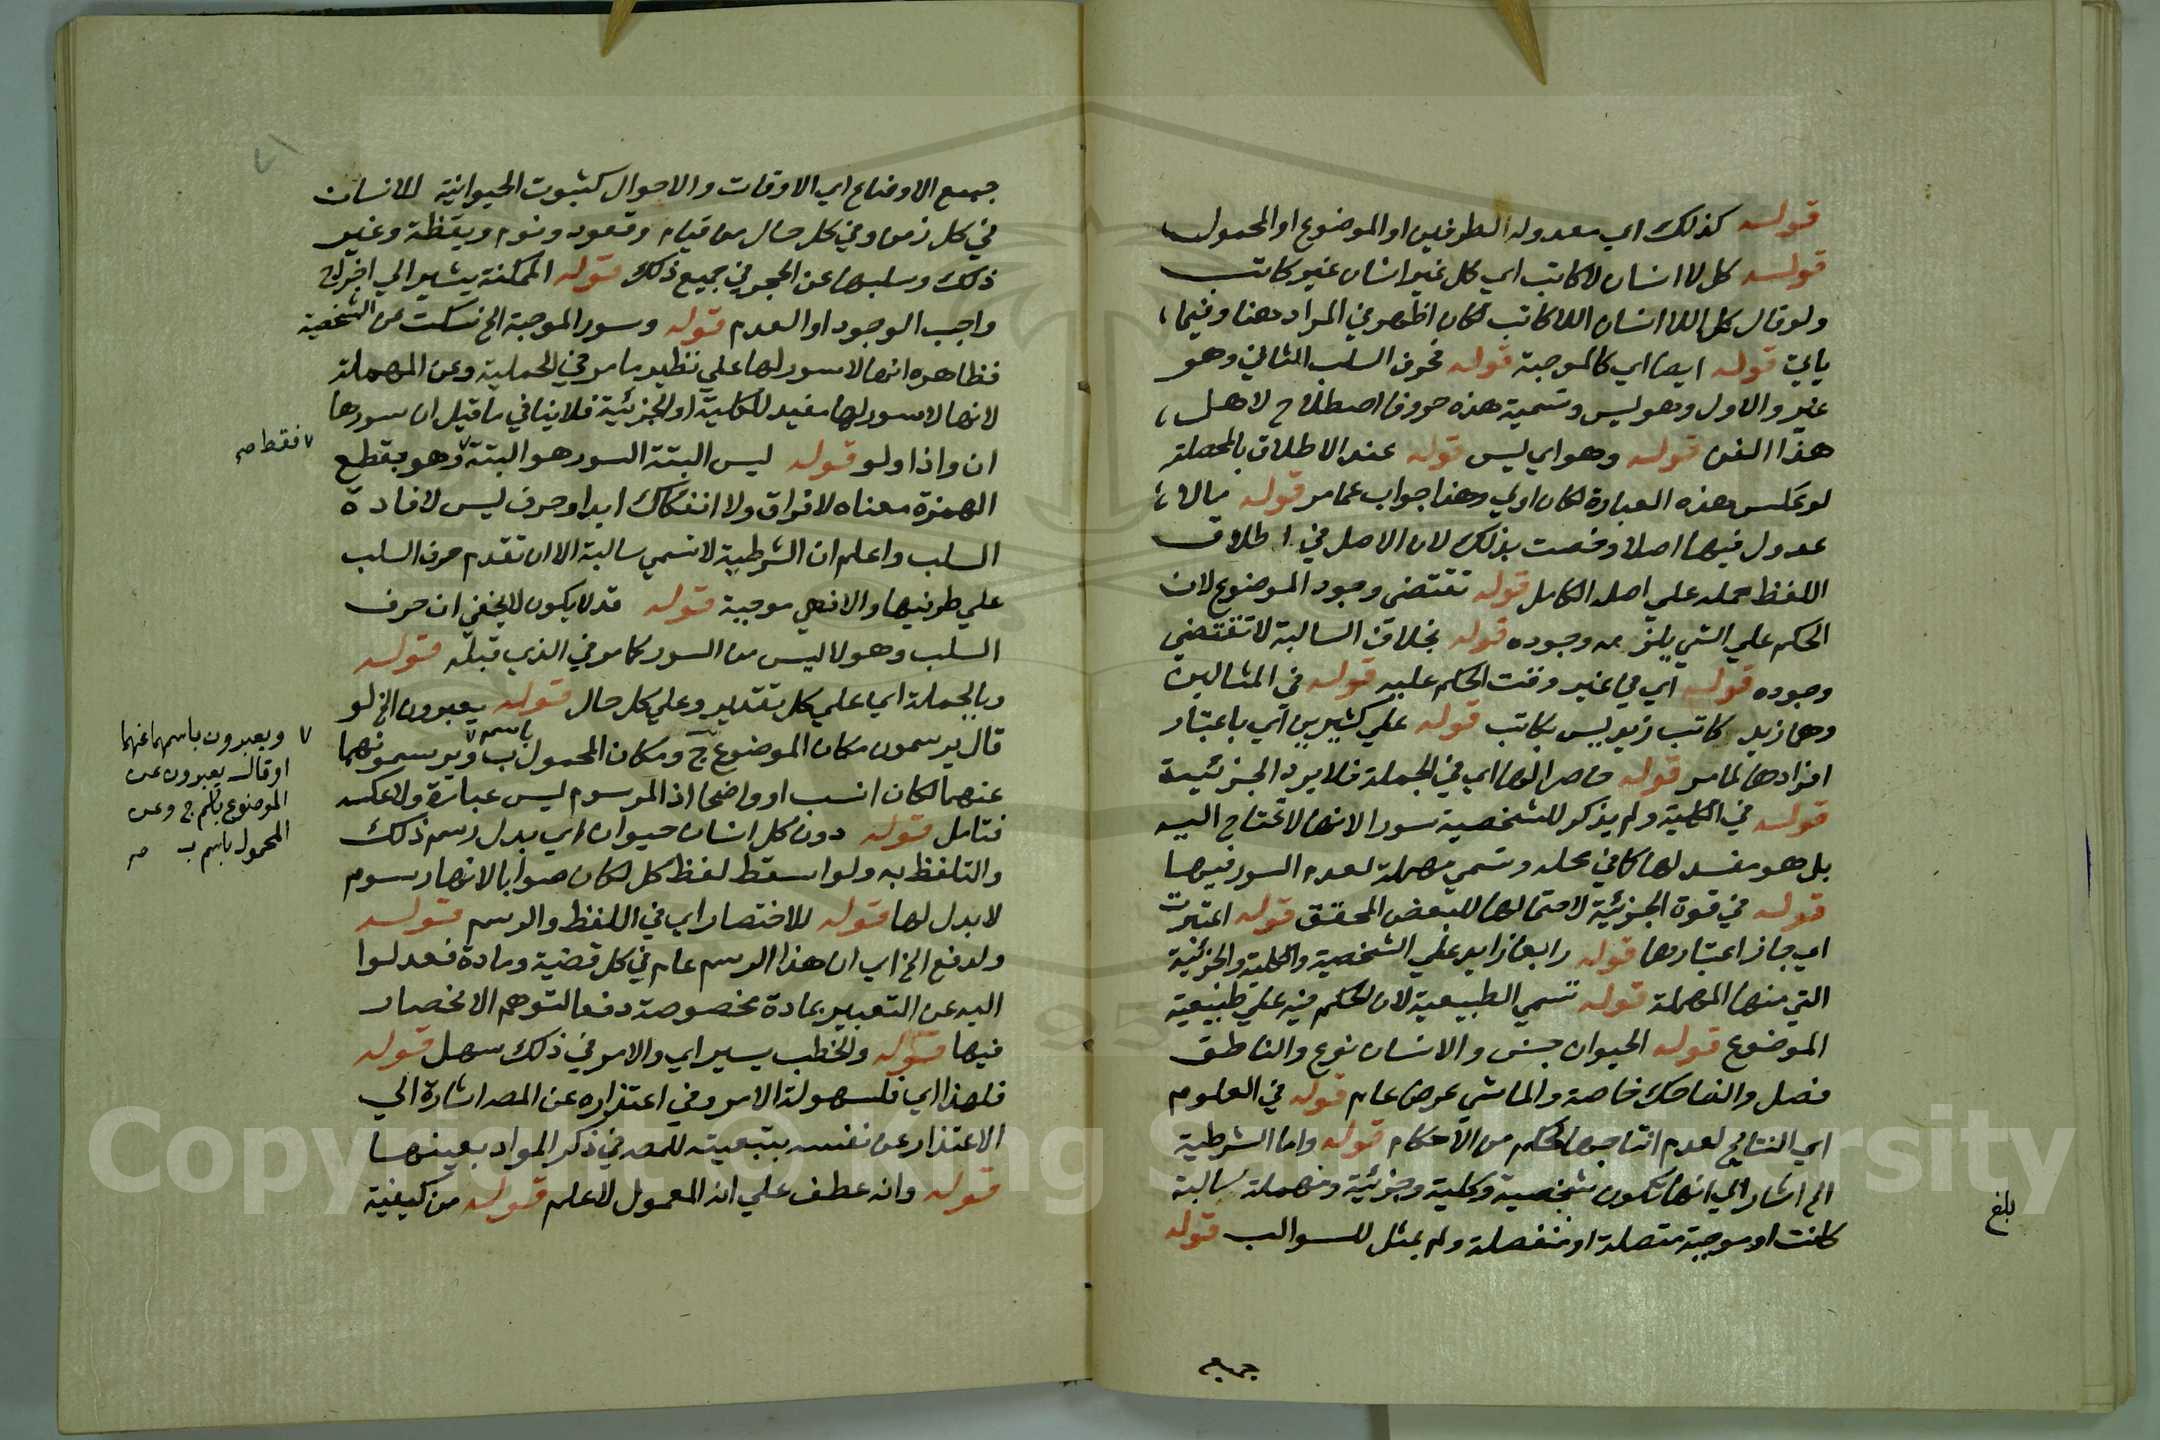 قوله كذلك اي معدولة الطرفين او الموضوع او المحمول
قوله كل لا انسان لا كاتب اي كل غير انسان غير كاتب
ولو قال كل اللا انسان اللا كاتب لكان اظهر في المراد هنا وفيما
ياتي قوله ايضا اي كالموجبة قوله فحرف السلب الثاني وهو
غير والاول وهو ليس وتسمية هذه حروفا اصطلاح لاهل
هذا الفن قوله وهو اي ليس قوله عند الاطلاق بالمحصلة
لو عكس هذه العبارة لكان اولي وهذا جواب عما مر قوله مالا
عدول فيها اصلا وخصت بذلك لان الاصل في اطلاق
اللفظ حمله علي اصله الكامل قوله تقتضي وجود الموضوع لان
الحكم علي الشي يلزمه وجوده قوله بخلاف السالبة لا تقتضي
وجوده قوله اي في غير وقت الحكم عليه قوله في المثالين
وهما زيد كاتب زيد ليس بكاتب قوله علي كثيرين اي باعتبار
افرادها لما مر قوله حاصرا لها اي في الجملة فلا يرد الجزئية
قوله في الكلية ولم يذكر للشخصية سورا لانها لا تحتاج اليه
بل هو مفسد لها كما في محله وتسمي مهملة لعدم السور فيها
قوله في قوة الجزئية لاحتمالها للبعض المحقق قوله اعتبرت
اي جاز اعتبارها قوله رابعا زايد علي الشخصية والكلية والجزئية
التي منها المهملة قوله تسمي الطبيعية لان الحكم فيه علي طبيعية
الموضوع قوله الحيوان جنس والانسان نوع والناطق
فصل والضاحك خاصة والماشي عرض عام قوله في العلوم
اي النتايج لعدم انتاجها الحكم من الاحكام قوله واما الشرطية
الخ اشار الي انها تكون شخصية وكلية وجزئية ومهملة سالبة
كانت او موجبة متصلة او منفصلة ولم يمثل للسوالب قوله
بلغ
جميع
جميع الاوضاع اي الاوقات والاحوال كثبوت الحيوانية للانسان
في كل زمن وفي كل حال من قيام وقعود ونوم ويقظة وغير
ذلك وسلبها عن الحجر في جميع ذلك قوله الممكنة يشير الي اخراج
واجب الوجود او العدم قوله وسور الموجبة الخ سكت عن الشخصية
فظاهره انها لا سور لها علي نظير ما مر في الحملية وعن المهملة
لانها لا سور لها مفيد للكلية او الجزئية فلا ينافي ما قيل ان سورها
ان واذا ولو قوله ليس البتة السور هو البتة وهو بقطع
الهمزة معناه لا فراق ولا انفكاك ابدا وحرف ليس لافادة
السلب واعلم ان الشرطية لا تسمي سالبة الا ان تقدم حرف السلب
علي طرفيها والا فهي موجبة قوله قد لا يكون لا يخفي ان حرف
السلب وهو لا ليس من السور كما مر في الذي قبله قوله
وبالجملة اي علي كل تقدير وعلي كل حال قوله يعبرون الخ لو
قال يرسمون مكان الموضوع ج ومكان المحمول ب ويرسمونهما
باسمه
عنهما لكان انسب او واضحا اذ المرسوم ليس عبارة ولا عكسه
فتامل قوله دون كل انسان حيوان اي بدل رسم ذلك
والتلفظ به ولو اسقط لفظ كل لكان صوابا لانها رسوم
لا بدل لها قوله للاختصار اي في اللفظ والرسم قوله
ولدفع الخ اي ان هذا الرسم عام في كل قضية ومادة فعدلوا
اليه عن التعبير بمادة مخصوصة دفعا لتوهم الانحصار
فيها قوله والخطب يسير اي والامر في ذلك سهل قوله
فلهذا اي فلسهولة الامر وفي اعتذاره عن المصه اشارة الي
الاعتذار عن نفسه بتبعيته للمصه في ذكر المواد بعينها
قوله وانه عطف علي ان المعمول لاعلم قوله من كيفية
فقط صح
ويعبرون باسمهما عنهما
او قال يعبرون عن
الموضوع باسم ج وعن
المحمول باسم ب صح